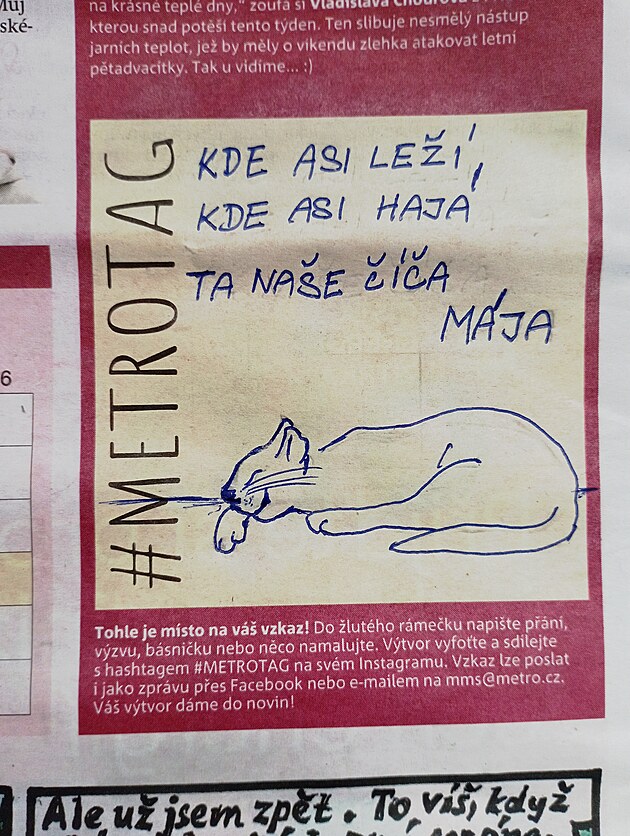 na krásné teplé dny,“ zoufá si Vladislava
kterou snad potěší tento týden. Ten slibuje nesmělý nástup
jarních teplot, jež by měly o víkendu zlehka atakovat letní
pětadvacítky. Tak uvidíme... :)
ské-
#METROTAG
KDE ASI LEŽÍ,
KDE ASI HAJÁ
TA NAŠE ČÍČA
MÁJA
6
Tohle je místo na váš vzkaz! Do žlutého rámečku napište přání,
výzvu, básničku nebo něco namalujte. Výtvor vyfoťte a sdílejte
s hashtagem #METROTAG na svém Instagramu. Vzkaz lze poslat
i jako zprávu přes Facebook nebo e-mailem na mms@metro.cz.
Váš výtvor dáme do novin!
Ale už jsem zpět. To víš, když